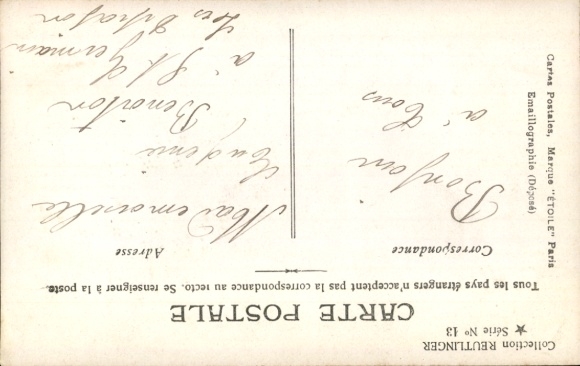 Collection REUTLINGER
★ Série Nº 13
CARTE POSTALE
Tous les pays étrangers n'acceptent pas la correspondance au recto. Se renseigner à la poste
Correspondance
Bonjour
à Tous
Adresse
Mademoiselle
Eugénie
Benoiton
à St Germain
Les
Cartes Postales, Marque "ÉTOILE" Paris
Emaillographie (Déposé)